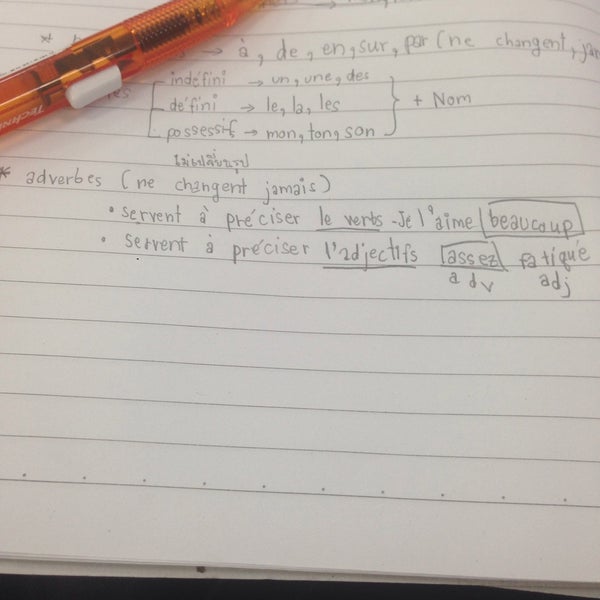 * → à, de, en, sur, par (ne changent, ja
indéfini → un, une, des
défini → le, la, les } + Nom
possessif → mon, ton, son
ไม่เปลี่ยนรูป
* adverbes (ne changent jamais)
• servent à préciser le verbs - Je l'aime beaucoup
• servent à préciser l'adjectifs assez fatiqué
adv adj